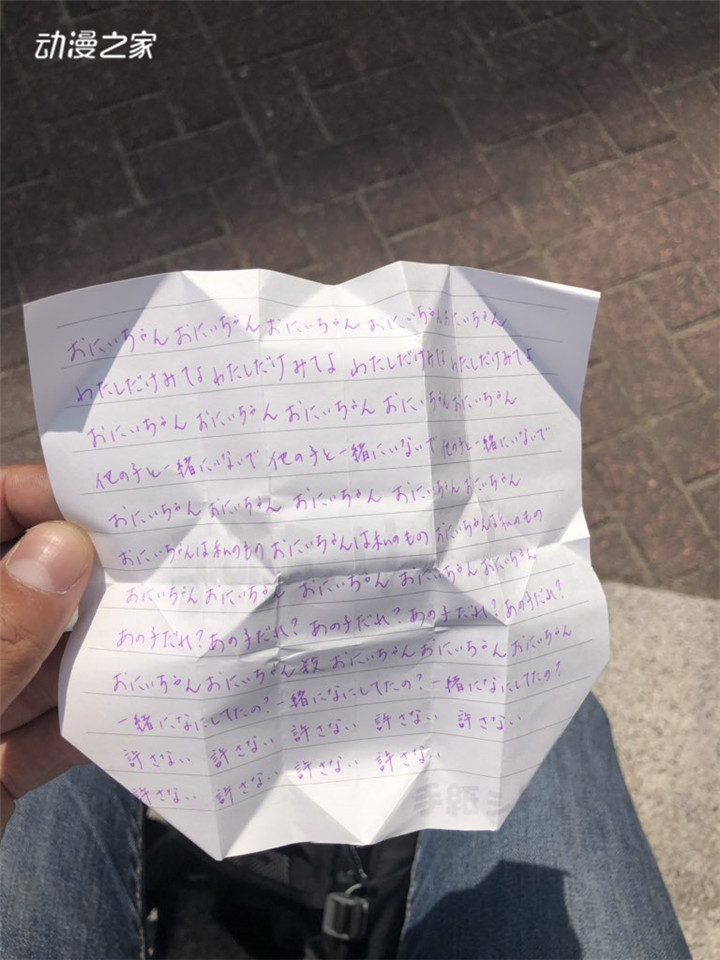 动漫之家
おにいちゃん おにいちゃん おにいちゃん おにいちゃん おにいちゃん
わたしだけみてよ わたしだけみてよ わたしだけみてよ わたしだけみてよ わたしだけみてよ
おにいちゃん おにいちゃん おにいちゃん おにいちゃん おにいちゃん
他の子と一緒にいないで 他の子と一緒にいないで 他の子と一緒にいないで
おにいちゃん おにいちゃん おにいちゃん おにいちゃん おにいちゃん
おにいちゃんは私のもの おにいちゃんは私のもの おにいちゃんは私のもの
おにいちゃん おにいちゃん おにいちゃん おにいちゃん おにいちゃん
あの子だれ? あの子だれ? あの子だれ? あの子だれ? あの子だれ?
おにいちゃん おにいちゃん 殺 おにいちゃん おにいちゃん おにいちゃん
一緒になにしてたの? 一緒になにしてたの? 一緒になにしてたの?
許さない 許さない 許さない 許さない 許さない
許さない 許さない 許さない 許さない